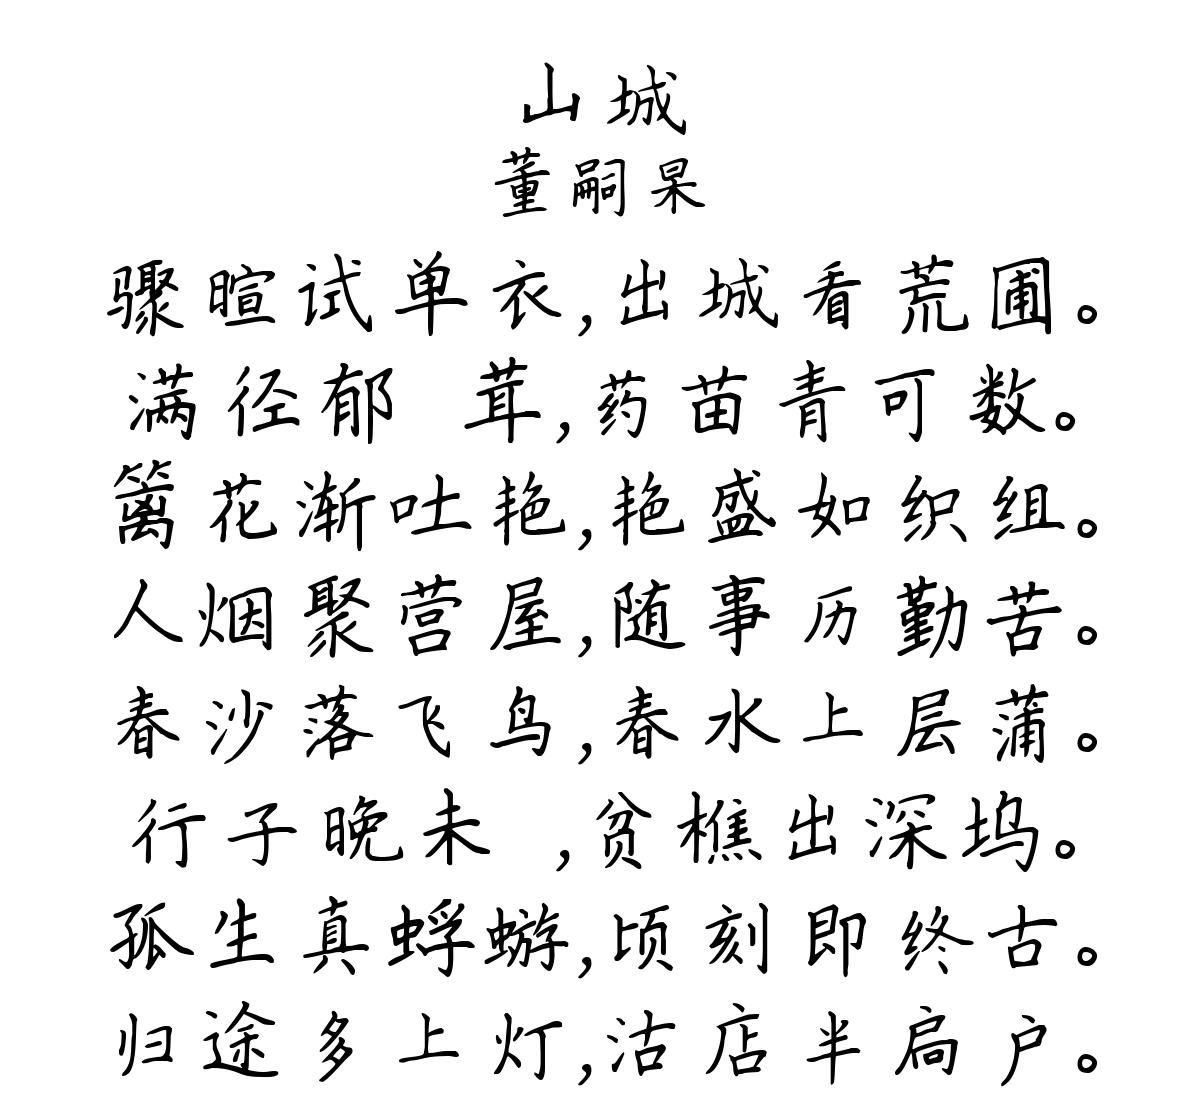 山城
董嗣杲
骤暄试单衣,出城看荒圃。
满径郁 茸,药苗青可数。
篱花渐吐艳,艳盛如织组。
人烟聚营屋,随事历勤苦。
春沙落飞鸟,春水上层蒲。
行子晚未 ,贫樵出深坞。
孤生真蜉蝣,顷刻即终古。
归途多上灯,沽店半扃户。